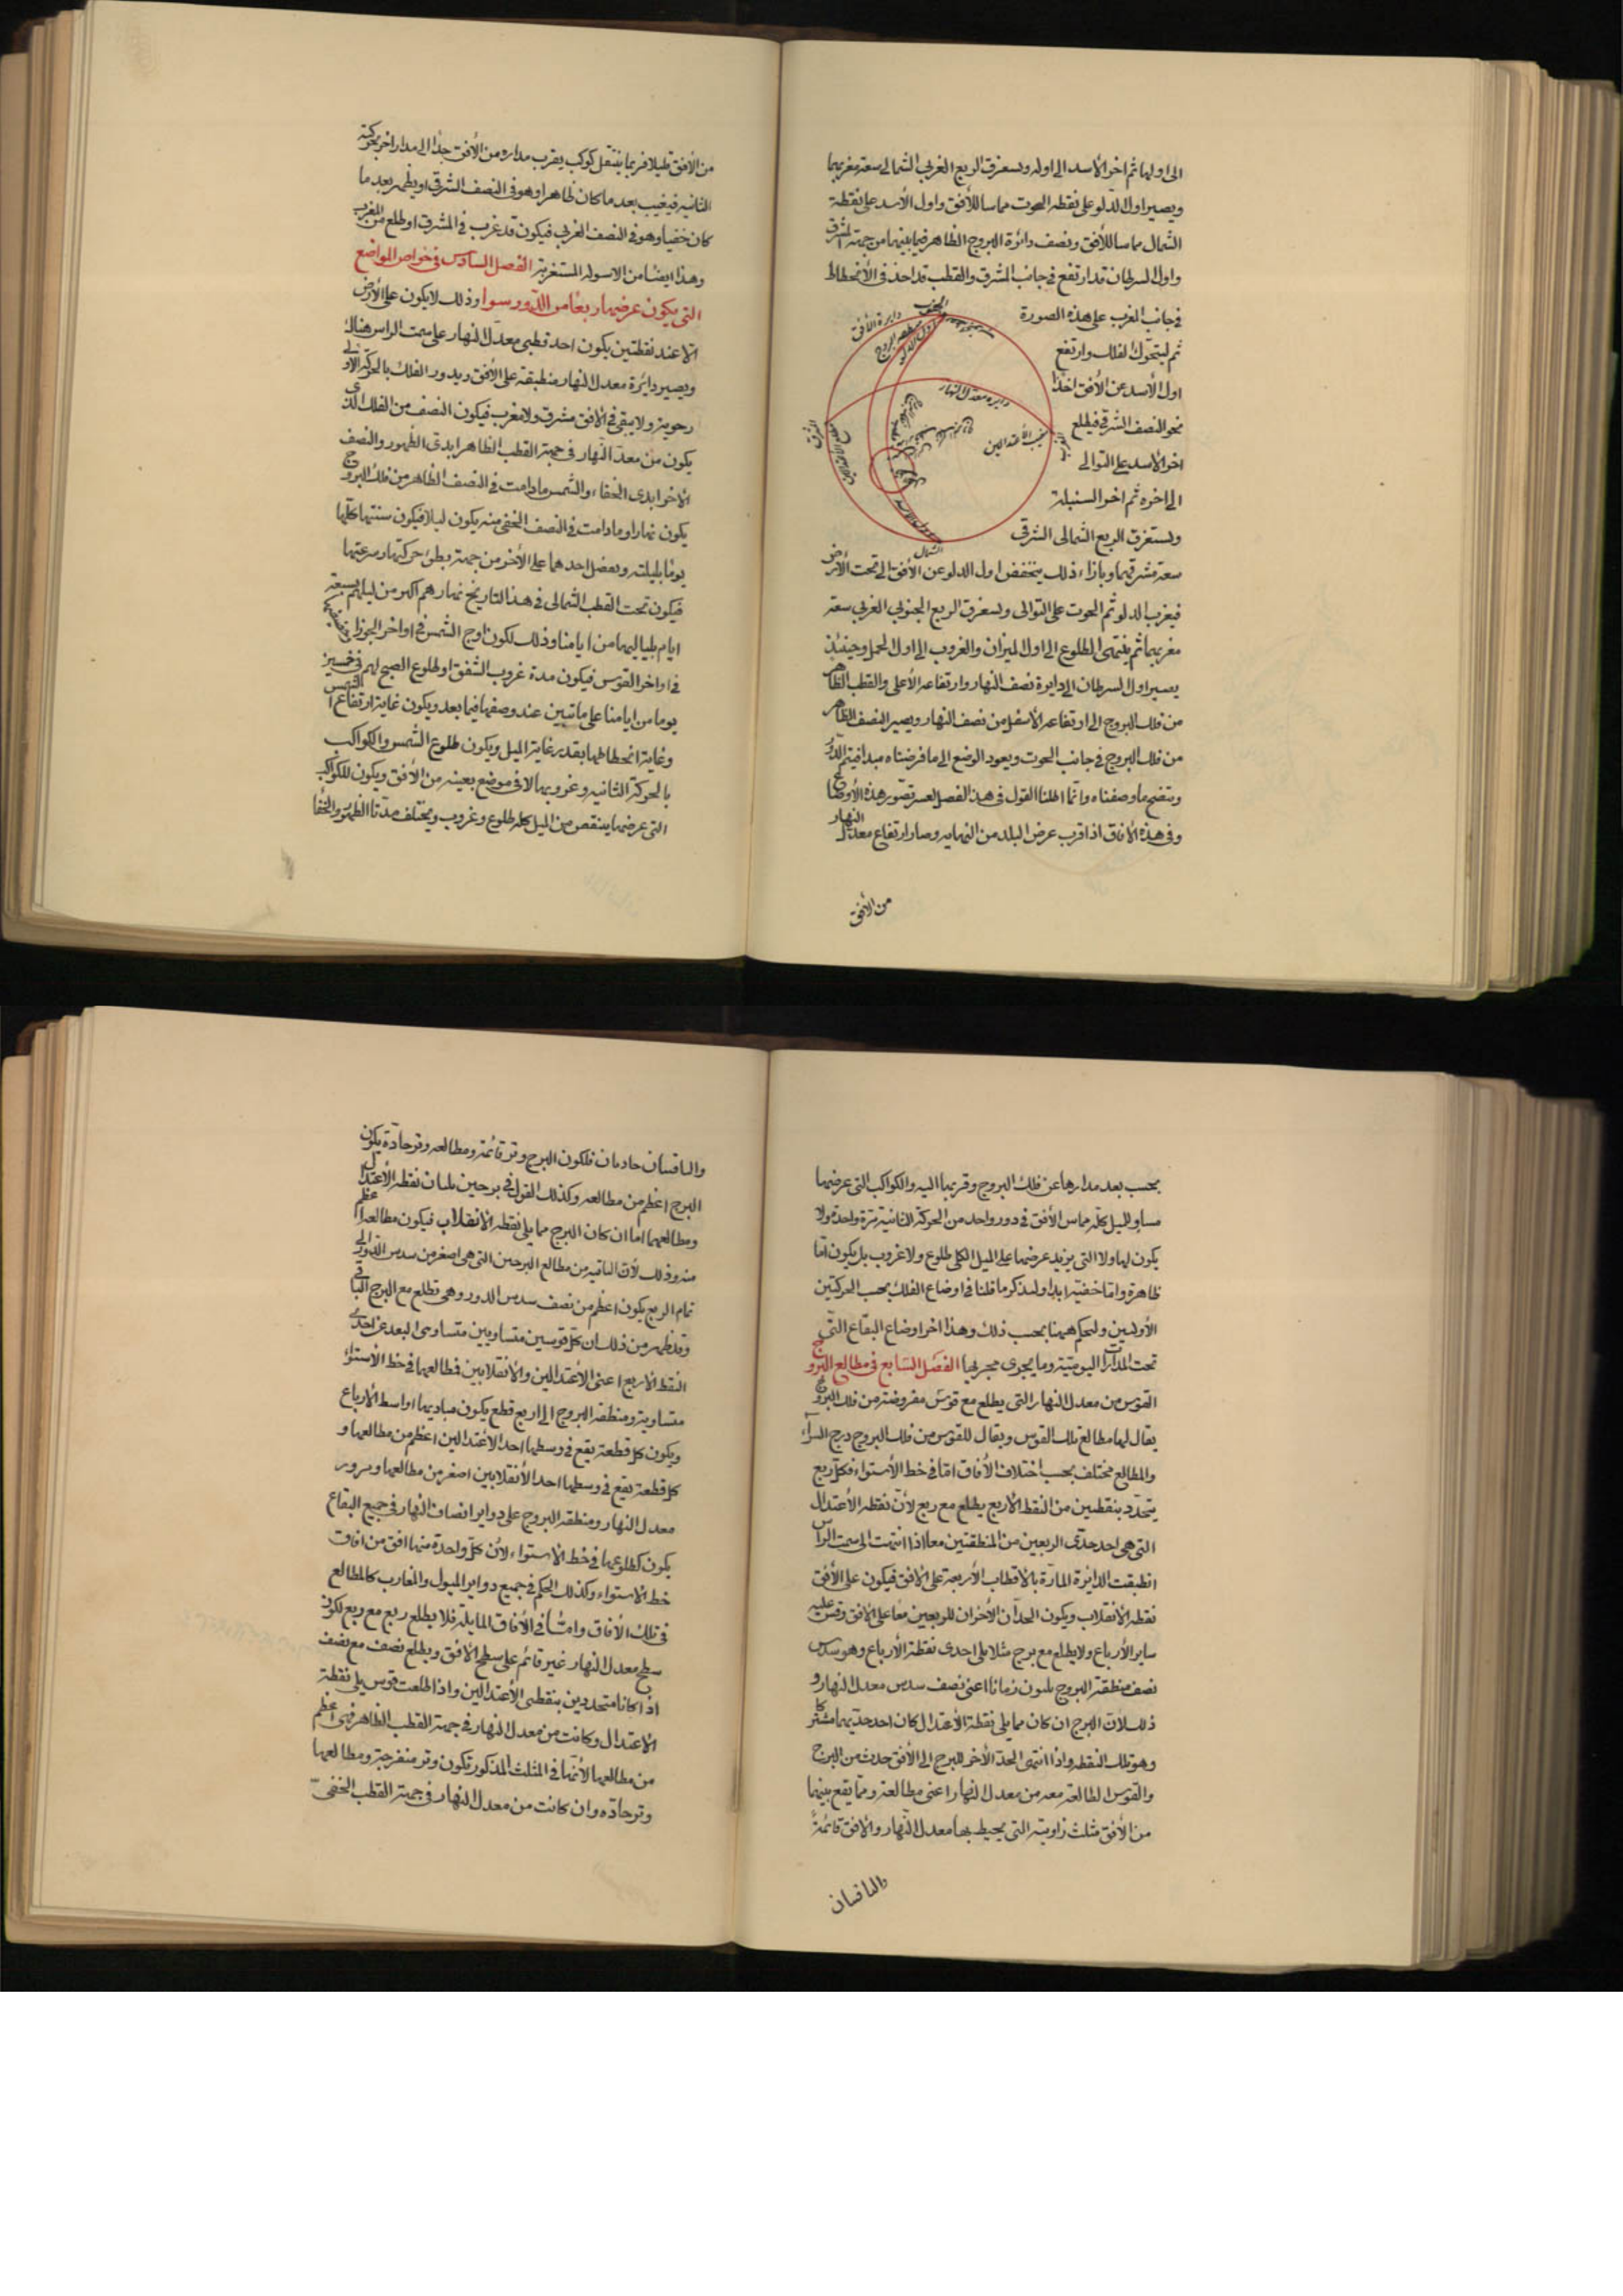 الى اولها ثم اخر الأسد الى اوله ويستغرق الربع الغربي الشمالي سعة مغربهما
ويصير اول الدلو على نقطه الجنوب مماسا للأفق واول الأسد على نقطة
الشمال مماسا للأفق ونصف دائرة البروج الظاهر فيما بينهما من جهة المشرق
واول السرطان قد ارتفع في جانب المشرق والقطب قد اخذ في الأنحطاط
في جانب المغرب على هذه الصورة
ثم ليتحرك الفلك وارتفع
اول الأسد عن الأفق اخذا
نحو النصف الشرقي فيطلع
اخر الاسد على التوالي
الى اخره ثم اخر السنبلة
ويستغرق الربع الشمالي الشرقي
دايرة الأفق
الجنوب
دايره معدل النهار
المشرق
الشمال
سعة مشرقهما وبازاء ذلك ينخفض اول الدلو عن الأفق الى تحت الأرض
فيغرب الدلو ثم الحوت على التوالى ويستغرق الربع الجنوبي الغربي سعة
مغربهما ثم ينتهى الطلوع الى اول الميزان والغروب الى اول الحمل وحينئذ
يصير اول السرطان الى دايرة نصف النهار وارتفاعه الأعلى والقطب الظاهر
من فلك البروج الى ارتفاعه الأسفل من نصف النهار ويصير النصف الظاهر
من فلك البروج في جانب الجنوب ويعود الوضع الى ما فرضناه مبدا فيتم الدور
ويتضح ما وصفناه وانما اطلنا القول في هذا الفصل لعسر تصور هذه الأوضاع
وفي هذه الافاق اذا قرب عرض البلد من النهايه وصار ارتفاع معدل النهار
من الأفق
من الأفق قليلا فربما ينتقل كوكب يقرب مداره من الأفق جدا الى مدار اخر بحركته
الثانيه فيغيب بعد ما كان ظاهرا وهو في النصف الشرقي او يظهر بعد ما
كان خفيا وهو في النصف الغربي فيكون قد غرب في المشرق او طلع من المغرب
وهذا ايضا من الاسوله المستغربة الفصل السادس في خواص المواضع
التي يكون عرضها ربعا من الدور سوا وذلك لا يكون على الأرض
الا عند نقطتين يكون احد قطبي معدل النهار على سمت الراس هناك
ويصير دايرة معدل النهار منطبقة على الأفق ويدور الفلك بالحركة الاولى
رحوية ولا يبقى في الافق مشرق ولا مغرب فيكون النصف من الفلك الذى
يكون من معدل النهار في جهة القطب الظاهر ابدى الظهور والنصف
الاخر ابدى الخفاء والشمس ما دامت في النصف الظاهر من فلك البروج
يكون نهارا وما دامت في النصف الخفي منه يكون ليلا فيكون سنتها كلها
يوما بليلته ويفضل احدهما على الأخر من جهة بطئ حركتها وسرعتها
فيكون تحت القطب الشمالي في هذا التاريخ نهارهم اكبر من ليلهم بسبعة
ايام بلياليها من ايامنا وذلك لكون اوج الشمس في اواخر الجوزا
في اواخر القوس فيكون مدة غروب الشفق او طلوع الصبح لهم في خمسين
يوما من ايامنا على ما تبين عند وصفها فيما بعد ويكون غاية ارتفاع الشمس
وغاية انحطاطها بقدر غاية الميل ويكون طلوع الشمس والكواكب
بالحركة الثانيه وغروبها لا في موضع بعينه من الأفق ويكون للكواكب
التي عرضها ينقص من الميل كله طلوع وغروب ويختلف مدتا الظهور والخفا
بحسب بعد مدارها عن فلك البروج وقربها اليه والكواكب التي عرضها
مساو للميل كله مماس الأفق في دور واحد من الحركة الثانية مرة واحدة ولا
يكون لها ولا التي يزيد عرضها على الميل الكلى طلوع ولا غروب بل يكون اما
ظاهرة واما خفية ابدا ولنذكر ما قلنا في اوضاع الفلك بحسب الحركتين
الأوليين وليحكم هيهنا بحسب ذلك وهذا اخر اوضاع البقاع التي
تحت المدارات اليومية وما يجرى مجريها الفصل السابع في مطالع البروج
القوس من معدل النهار التي يطلع مع قوس مفروضة من فلك البروج
يقال لها مطالع تلك القوس ويقال للقوس من فلك البروج درج السواء
والمطالع مختلف بحسب اختلاف الأفاق اما في خط الأستواء فكل ربع
يتحدد بنقطتين من النقط الاربع يطلع مع ربع لأن نقطه الأعتدال
التي هي احد حدى الربعين من المنطقتين معا اذا انتهت الى سمت الراس
انطبقت الدائرة المارة بالاقطاب الأربعة على الافق فيكون على الأفق
نقطه الأنقلاب ويكون الحدان الأخران للربعين معا على الافق وقس عليه
ساير الأرباع ولا يطلع مع برج مثلا يلى احدى نقطة الأرباع وهو سدس
نصف منطقة البروج ثلثون زمانا اعنى نصف سدس معدل النهار و
ذلك لان البرج ان كان مما يلى نقطة الأعتدال كان احد حديهما مشتركا
وهو تلك النقطه واذا انتهى الحد الأخر للبرج الى الأفق حدث من البرج
والقوس الطالعة معه من معدل النهار اعنى مطالعه ومما يقع بينهما
من الأفق مثلث زاويته التي يحيط بها معدل النهار والافق قائمة
والباقيتان
والباقيتان حادتان فلكون البرج وتر قائمة ومطالعه وتر حادة يكون
البرج اعظم من مطالعه وكذلك القول في برجين يليان نقطه الأعتدال
ومطالعهما اما ان كان البرج مما يلى نقطه الانقلاب فيكون مطالعه اعظم
منه وذلك لأن الباقيه من مطالع البرجين التي هي اصغر من سدس الدور الى
تمام الربع يكون اعظم من نصف سدس الدور وهي تطلع مع البرج الباقي
وقد ظهر من ذلك ان كل قوسين متساويين متساوى البعد عن احدى
النقط الأربع اعنى الأعتدالين والأنقلابين فطالعهما في خط الأستواء
متساوية ومنطقه البروج الى اربع قطع يكون مباديها اواسط الأرباع
ويكون كل قطعة يقع في وسطها احد الأعتدالين اعظم من مطالعها و
كل قطعة يقع في وسطها احد الأنقلابين اصغر من مطالعها ومرور
معدل النهار ومنطقه البروج على دواير انصاف النهار في جميع البقاع
يكون كطلوعها في خط الاستواء لأن كل واحدة منها افق من افاق
خط الاستواء وكذلك الحكم في جميع دواير الميول والمغارب كالمطالع
في تلك الأفاق واما في الأفاق المايلة فلا يطلع ربع مع ربع لكون
سطح معدل النهار غير قائم على سطح الافق ويطلع نصف مع نصف
اذا كانا متحددين بنقطتي الأعتدالين واذا طلعت قوس يلى نقطة
الاعتدال وكانت من معدل النهار في جهة القطب الظاهر فهى اعظم
من مطالعها لأنها في المثلث المذكور تكون وتر منفرجة ومطالعها
وتر حاده وان كانت من معدل النهار في جهة القطب الخفي